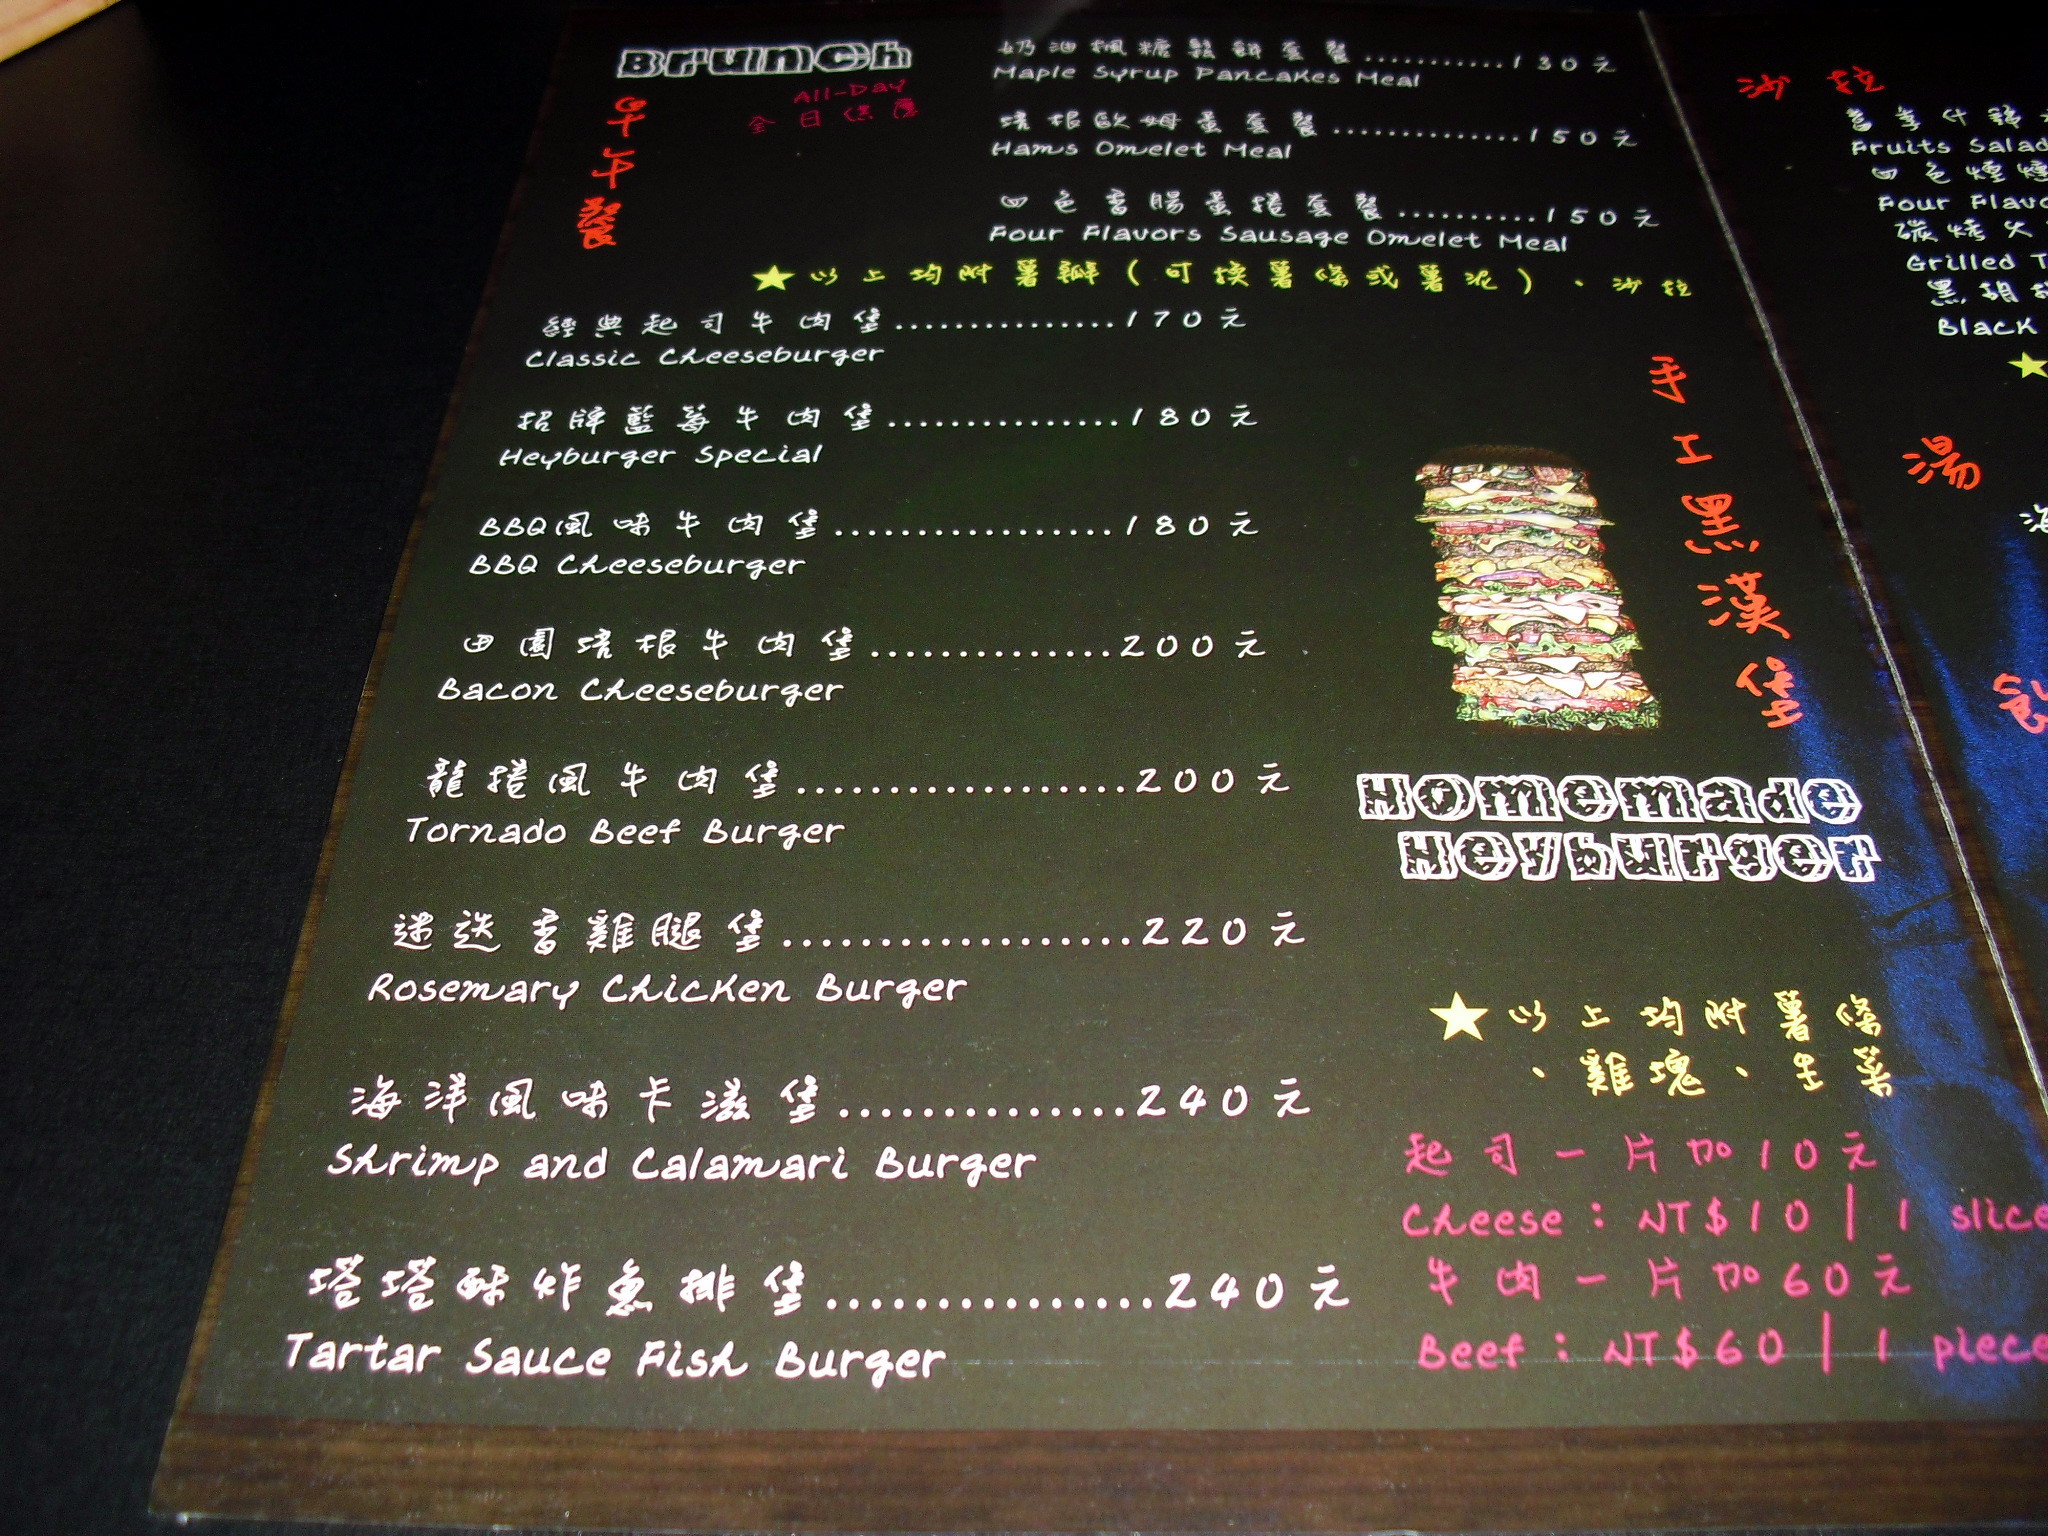 Brunch
早午餐
All-Day
全日供應
奶油楓糖鬆餅套餐............130元
Maple Syrup Pancakes Meal
培根歐姆蛋套餐...............150元
Hams Omelet Meal
四色香腸蛋捲套餐..........150元
Four Flavors Sausage Omelet Meal
★以上均附薯瓣(可換薯條或薯泥)、沙拉
經典起司牛肉堡...............170元
Classic Cheeseburger
招牌藍莓牛肉堡................180元
Heyburger Special
BBQ風味牛肉堡..................180元
BBQ Cheeseburger
田園培根牛肉堡..............200元
Bacon Cheeseburger
龍捲風牛肉堡...................200元
Tornado Beef Burger
迷迭香雞腿堡..................220元
Rosemary Chicken Burger
海洋風味卡滋堡..............240元
Shrimp and Calamari Burger
塔塔酥炸魚排堡................240元
Tartar Sauce Fish Burger
手工黑漢堡
Homemade
Heyburger
★以上均附薯條
、雞塊、生菜
起司一片加10元
Cheese：NT$10 | 1 slice
牛肉一片加60元
Beef：NT$60 | 1 piece
沙拉
Fruits Salad
四色煙燻
Four
碳烤火
Grilled
黑胡椒
Black
★
湯
海
飲